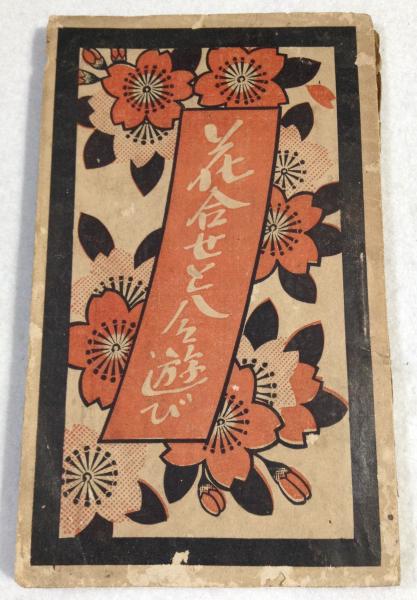 花合せと八々遊び